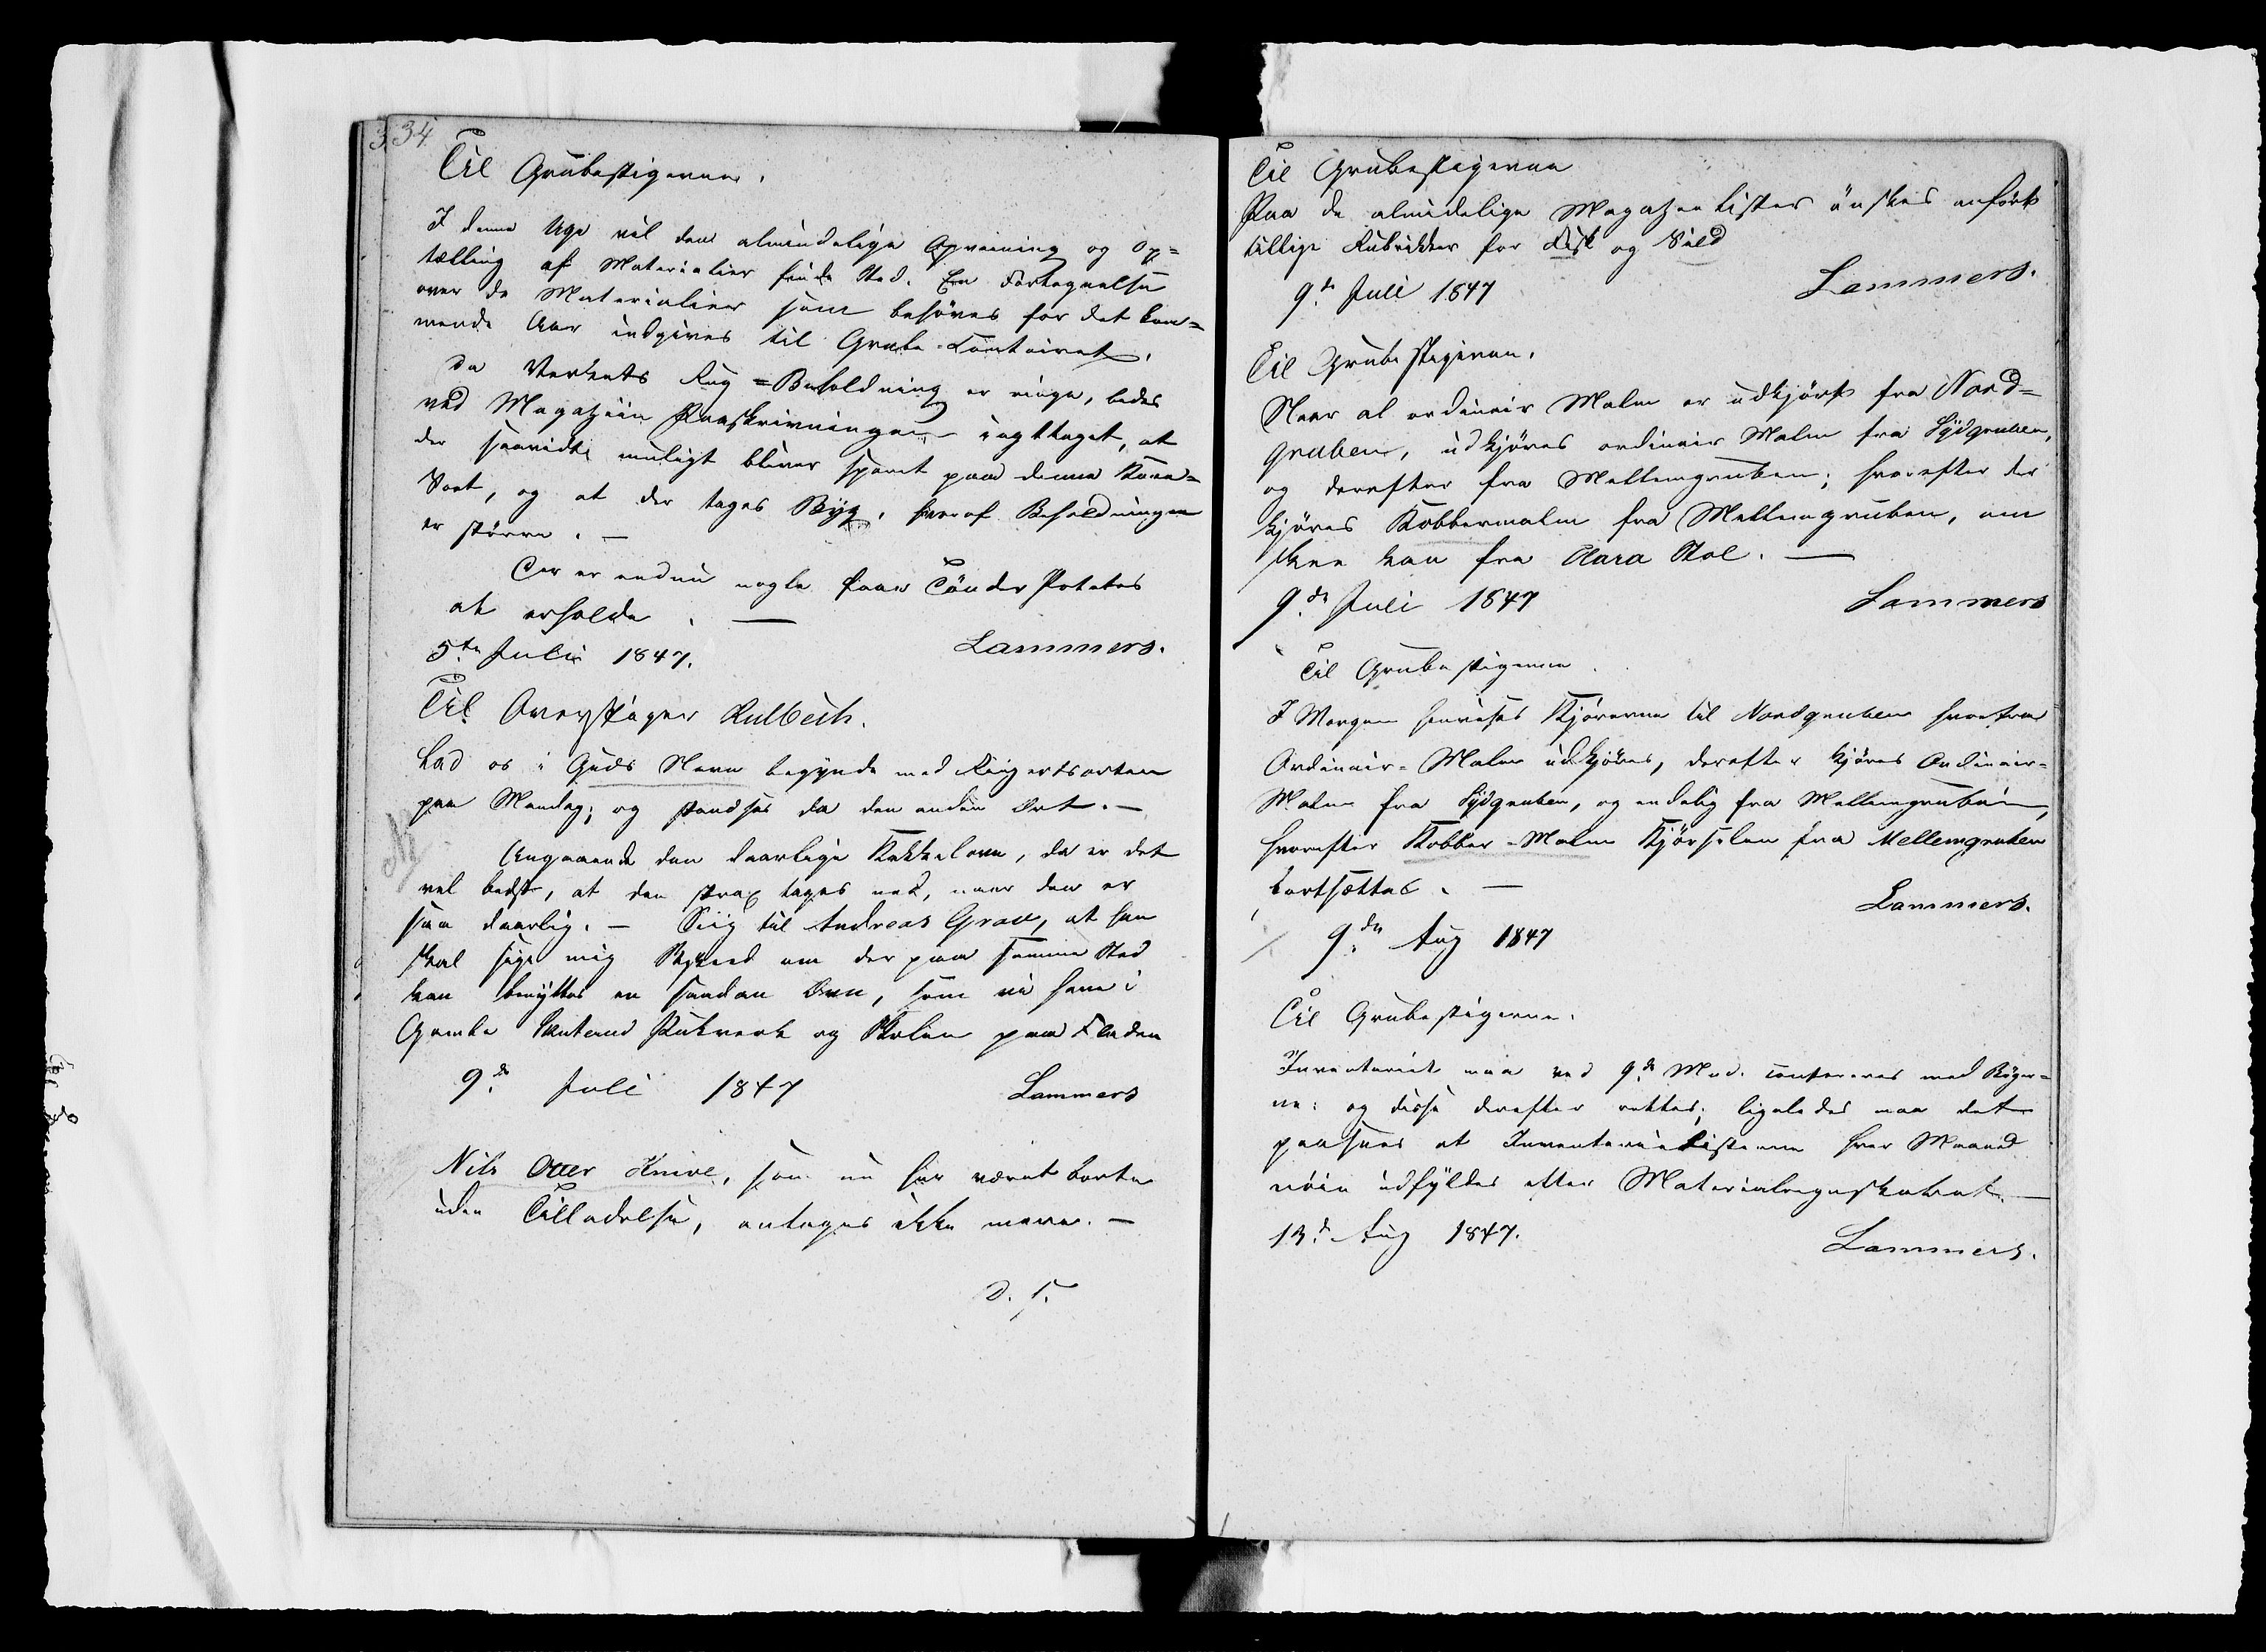 334
Til Grubestigerne.
I denne Uge vil den almindelige Opveining og Op=
tælling af Materialier finde Sted. En Fortegnelse
over de Materialier som behöves for det kom=
mende Aar indgives til Grube-Contoiret.
Da Verkets Rug=Beholdning er ringe, bedes
ved Magaziin Paaskrivningen iagttaget, at
der saavidt muligt bliver sparet paa denne Korn=
Sort, og at der tages Byg, hvoraf Beholdningen
er større. —
Der er endnu nogle faae Tönder Potetes
at erholde. —
5te Juli 1847. Lammers.
Til Overstiger Kulbech.
Lad os i Guds Navn begynde med
paa Mandag; og standses da den anden Ort. —
Angaaende den daarlige Kakkelovn, da er det
vel bedst, at den strax tages ned, naar den er
saa daarlig. — Siig til Andreas Grau, at han
skal sige mig Beskeed om der paa samme Sted
kan benyttes en saadan Ovn, som vi have i
Gamle Pukverk og Skolen paa Fladen
9de Juli 1847 Lammers
Nils Knive, som nu har været borte
uden Tilladelse, antages ikke mere. —
D. S.
Til Grubestigerne
Paa de almindelige Magazin Lister önskes anfört
tillige Rubrikker for Fisk og Sild
9de Juli 1847 Lammers.
Til Grubestigerne.
Naar al ordinair Malm er udkjört fra Nord=
gruben, udkjöres ordinair Malm fra Sydgruben,
og derefter fra Mellemgruben; hvorefter der
kjöres Kobbermalm fra Mellemgruben, om
skee kan fra Clara Stol. —
9de Juli 1847 Lammers
Til Grubestigerne.
I Morgen henvises Kjörerne til Nordgruben hvorfra
Ordinair-Malm udkjöres, derefter kjöres Ordinair=
Malm fra Sydgruben, og endelig fra Mellemgruben,
hvorefter Kobber-Malm Kjörselen fra Mellemgruben
fortsættes. —
Lammers.
9de Aug 1847
Til Grubestigerne.
Inventariet maa ved 9de Md. confereres med Böger=
ne; og disse derefter rettes; ligeledes maa det
paasees at Inventarielisterne hver Maaned
nöie udfyldes efter Materialregnskabet. —
13de Aug 1847. Lammers.